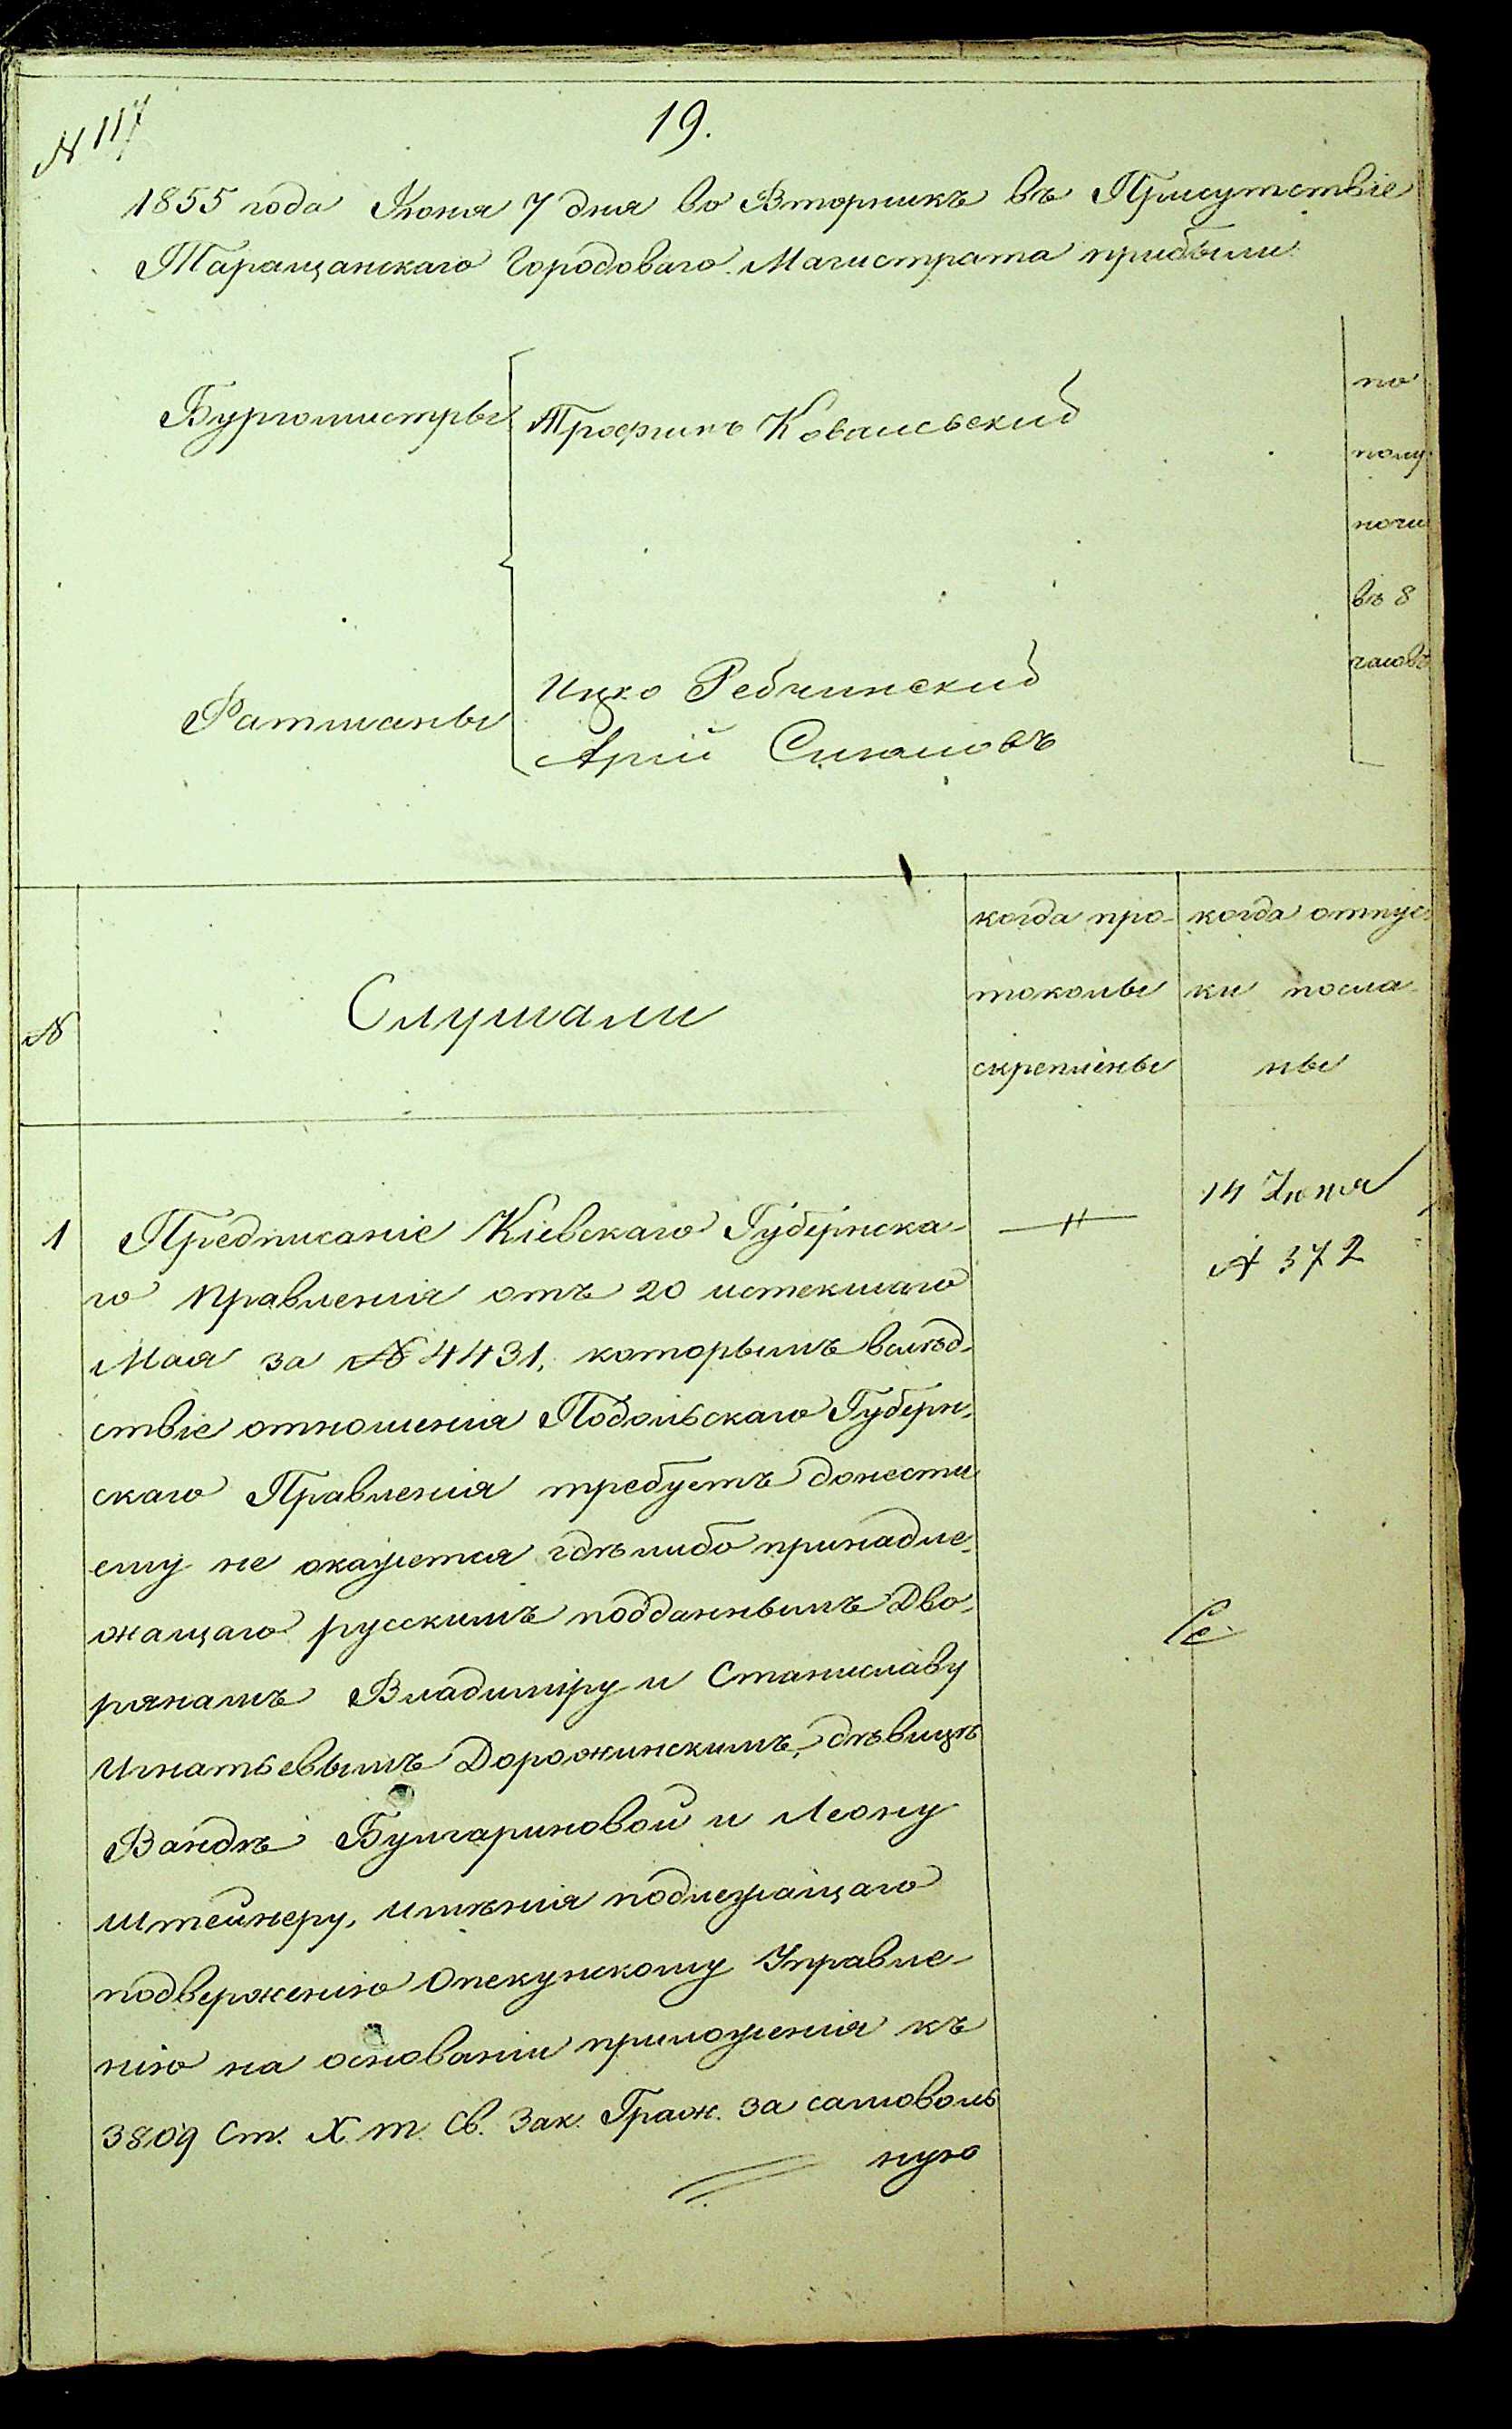 N 117
19.
1855 года Июня 7 дня во Вторникъ въ Присутствіе
Таращанскаго Городоваго Магистрата прибыли
Бургомистры Трофимъ Ковальський
Ратманы
Ицко Ребчинский
Арій
по
полу
ночи
въ 8
часовъ
N
Слушали
когда про-
токолы
скреплены
когда отпус-
ки посла-
ны
1 Предписаніе Кіевскаго Губернска-
го Правленія отъ 20 истекшаго
Мая за N 4431, которымъ вслѣд-
ствіе отношенія Подольскаго Губерн-
скаго Правленія требуетъ донести
ему не окажется гдѣ либо принадле-
жащаго русскимъ подданнымъ Дво-
рянамъ Владиміру и Станиславу
Игнатьевымъ Дорожинскимъ, дѣвицѣ
Вандѣ Булгариновой и Леону
Штейнеру, имѣнія подлежащаго
подверженію Опекунскому Управле-
нію на основаніи приложенія къ
3809 Ст. X т. Св. Зак. Граж. за самоволь
ную
14 Июня
N 372